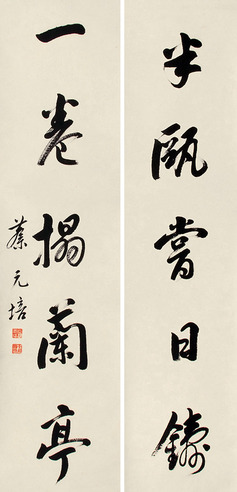 半甌嘗日鑄
一卷搨蘭亭
蔡元培